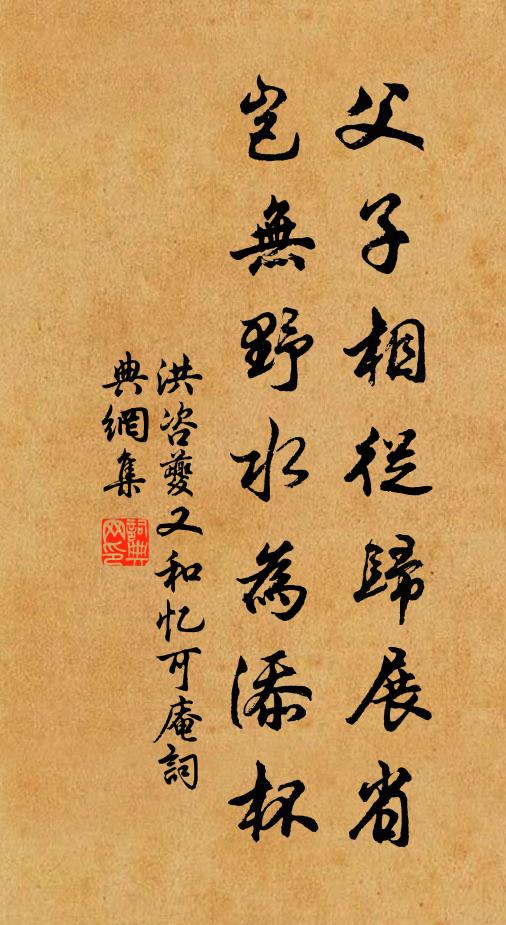 父子相從歸展省
豈無野水為添杯
洪咨夔又和忆可庵詞
典網集
詞典網印